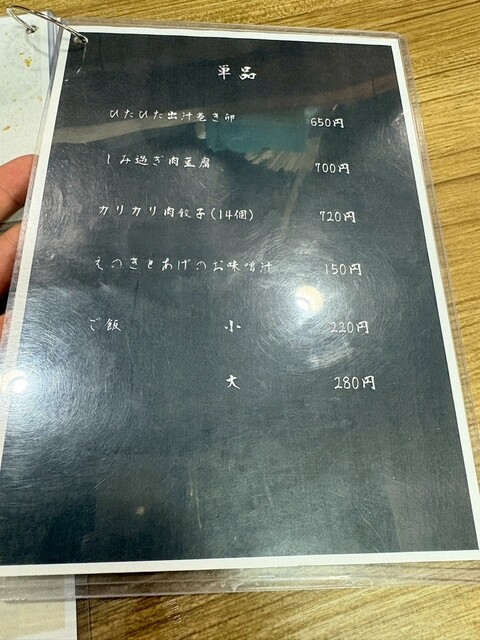 単品
ひたひた出汁巻き卵 650円
しみ過ぎ肉豆腐 700円
カリカリ肉餃子(14個) 720円
えのきとあげのお味噌汁 150円
ご飯 小 220円
大 280円